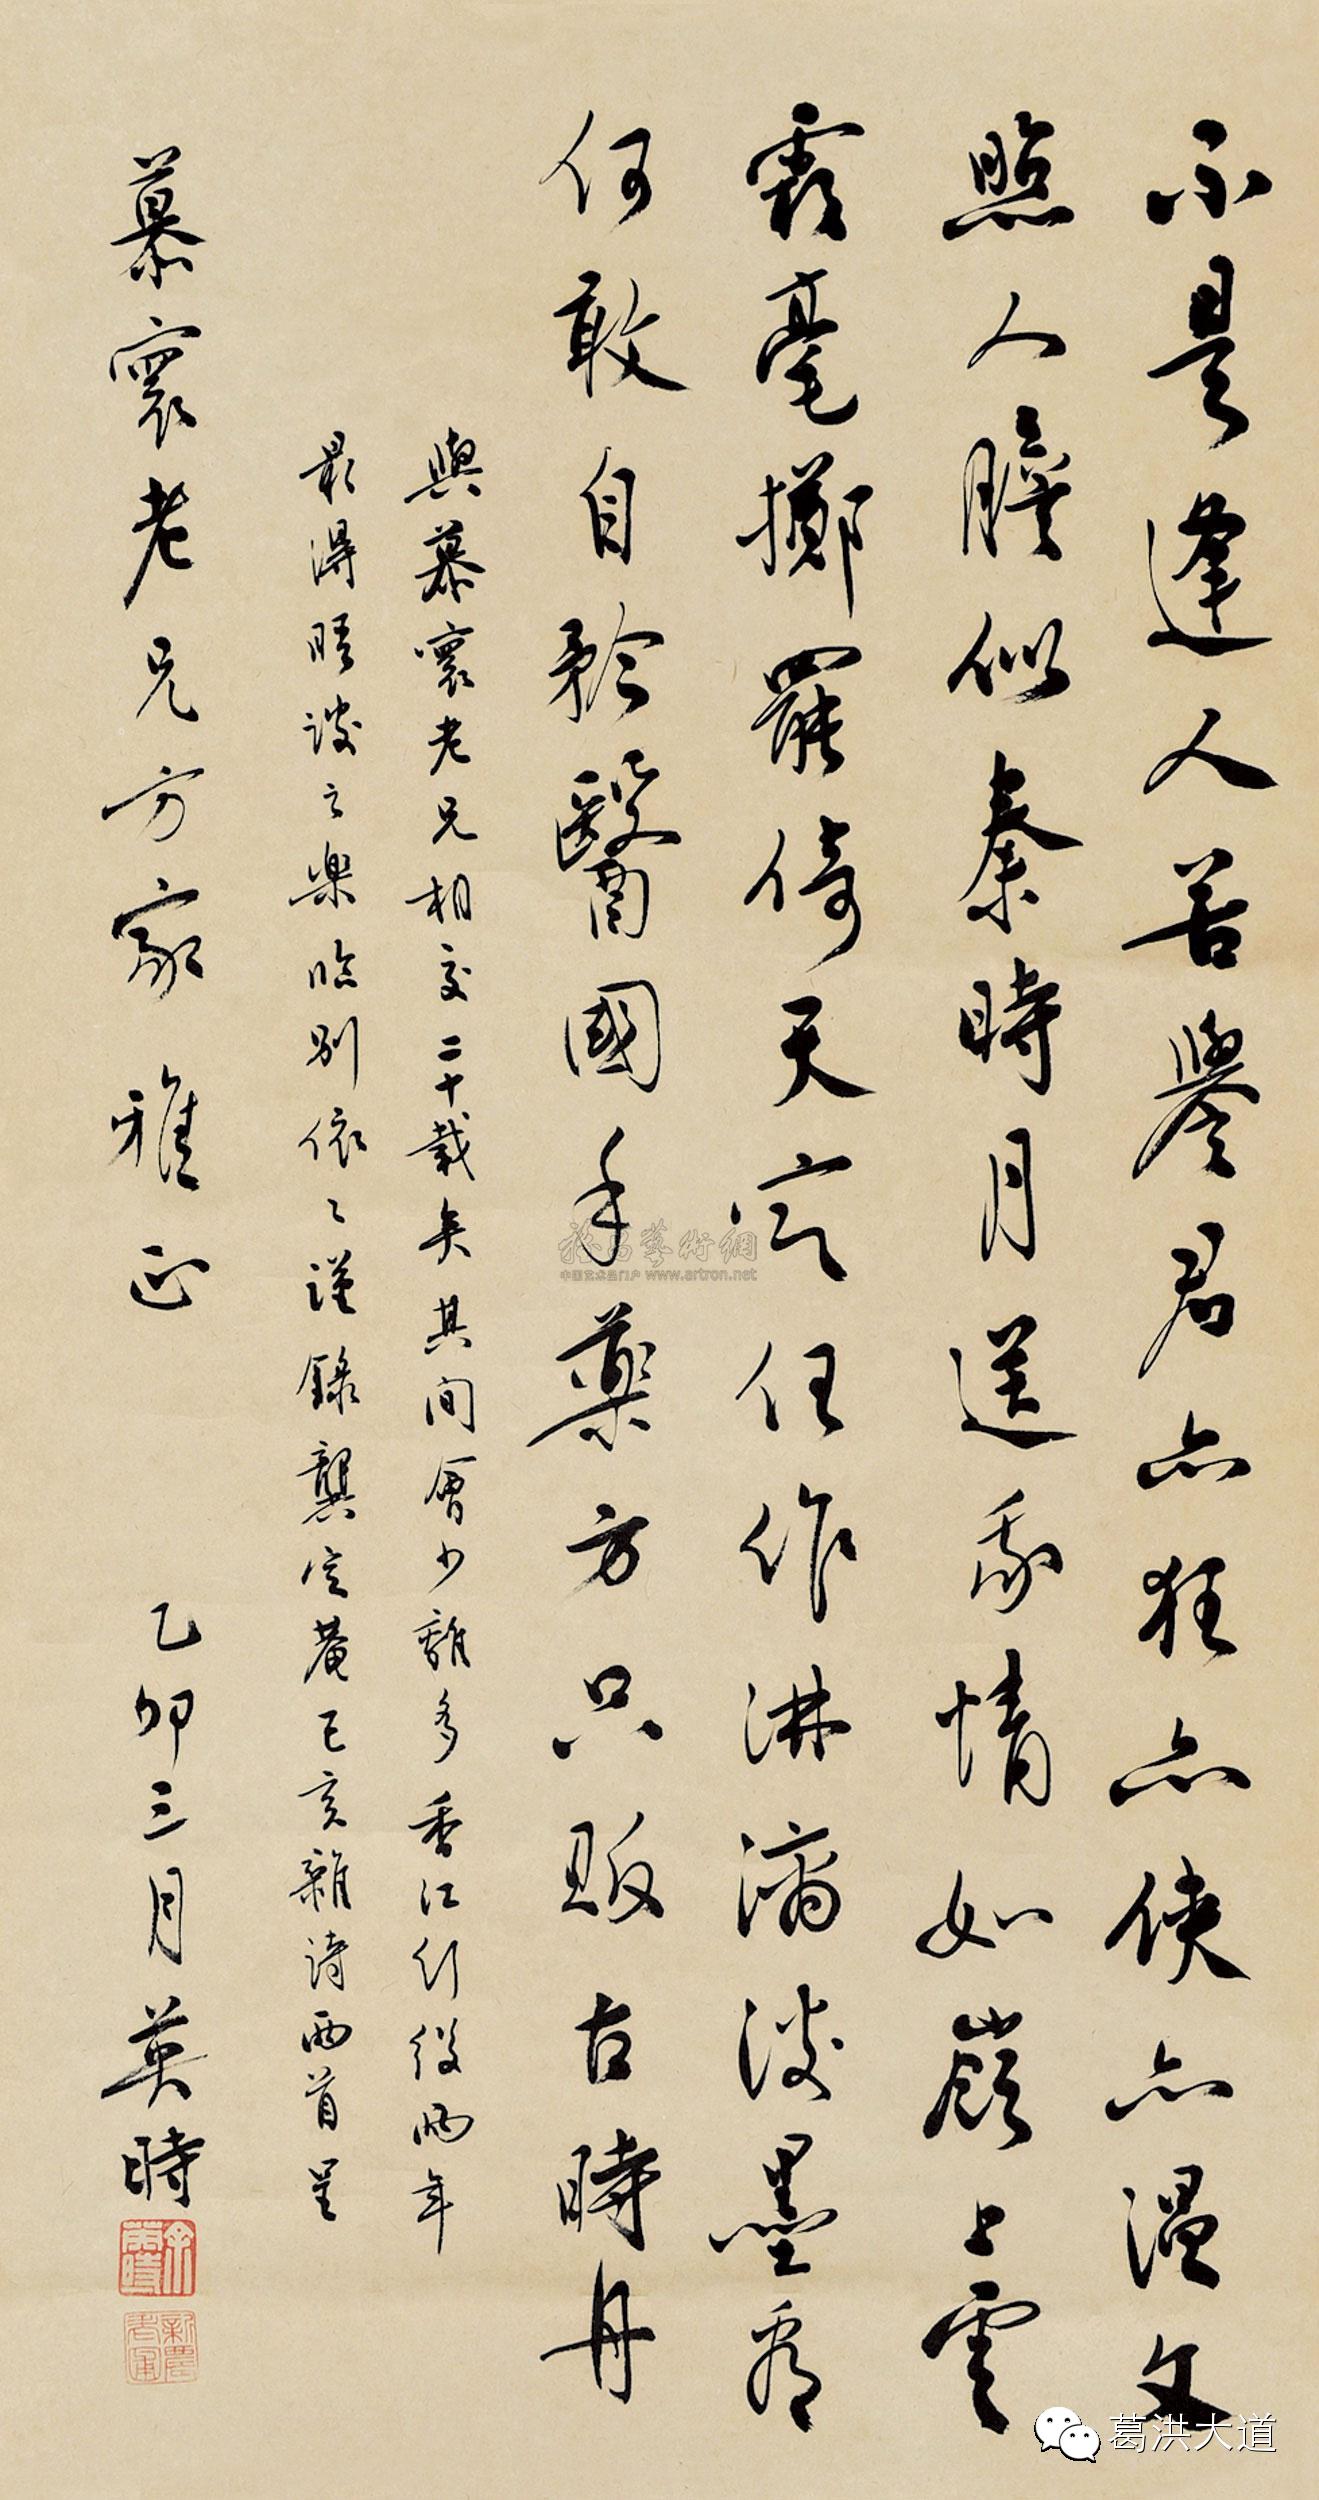 不是逢人苦譽君亦狂亦俠亦溫文
照人膽似秦時月送我情如嶺上雲
霜毫擲罷倚天寒任作淋漓淡墨看
何敢自矜醫國手藥方只販古時丹
與慕寰老兄相交二十載矣其間會少離多香江行役兩年
最得晤談之樂臨別依〻謹錄龔定菴己亥雜詩兩首呈
慕寰老兄方家 雅正 乙卯三月英時
余英時
雅昌藝術網
中国艺术品门户 www.artron.net
葛洪大道